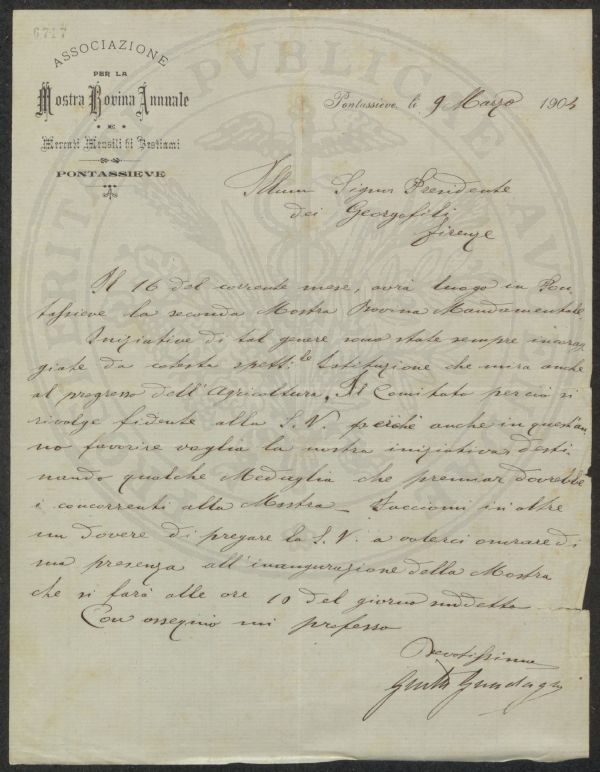 6717
ASSOCIAZIONE
PER LA
Mostra Bovina Annuale
E
Mercati Mensili di Bestiami
PONTASSIEVE
Pontassieve, lì 9 Marzo 1904
Illmo Signor Presidente
dei Georgofili
Firenze
Il 16 del corrente mese, avrà luogo in Pon
tassieve la seconda Mostra Bovina Mandamentale
Iniziative di tal genere sono state sempre incorag
giate da cotesta spett:le Istituzione che mira anche
al progresso dell'Agricoltura. Il Comitato perciò si
rivolge fidente alla S.V. perchè anche in quest'an
no favorire voglia la nostra iniziativa, desti
nando qualche Medaglia che premiar dovrebbe
i concorrenti alla Mostra _ Facciomi inoltre
un dovere di pregare la S.V. a volerci onorare di
sua presenza all'inaugurazione della Mostra
che si farà alle ore 10 del giorno suddetto
Con ossequio mi professo
Devotissimo